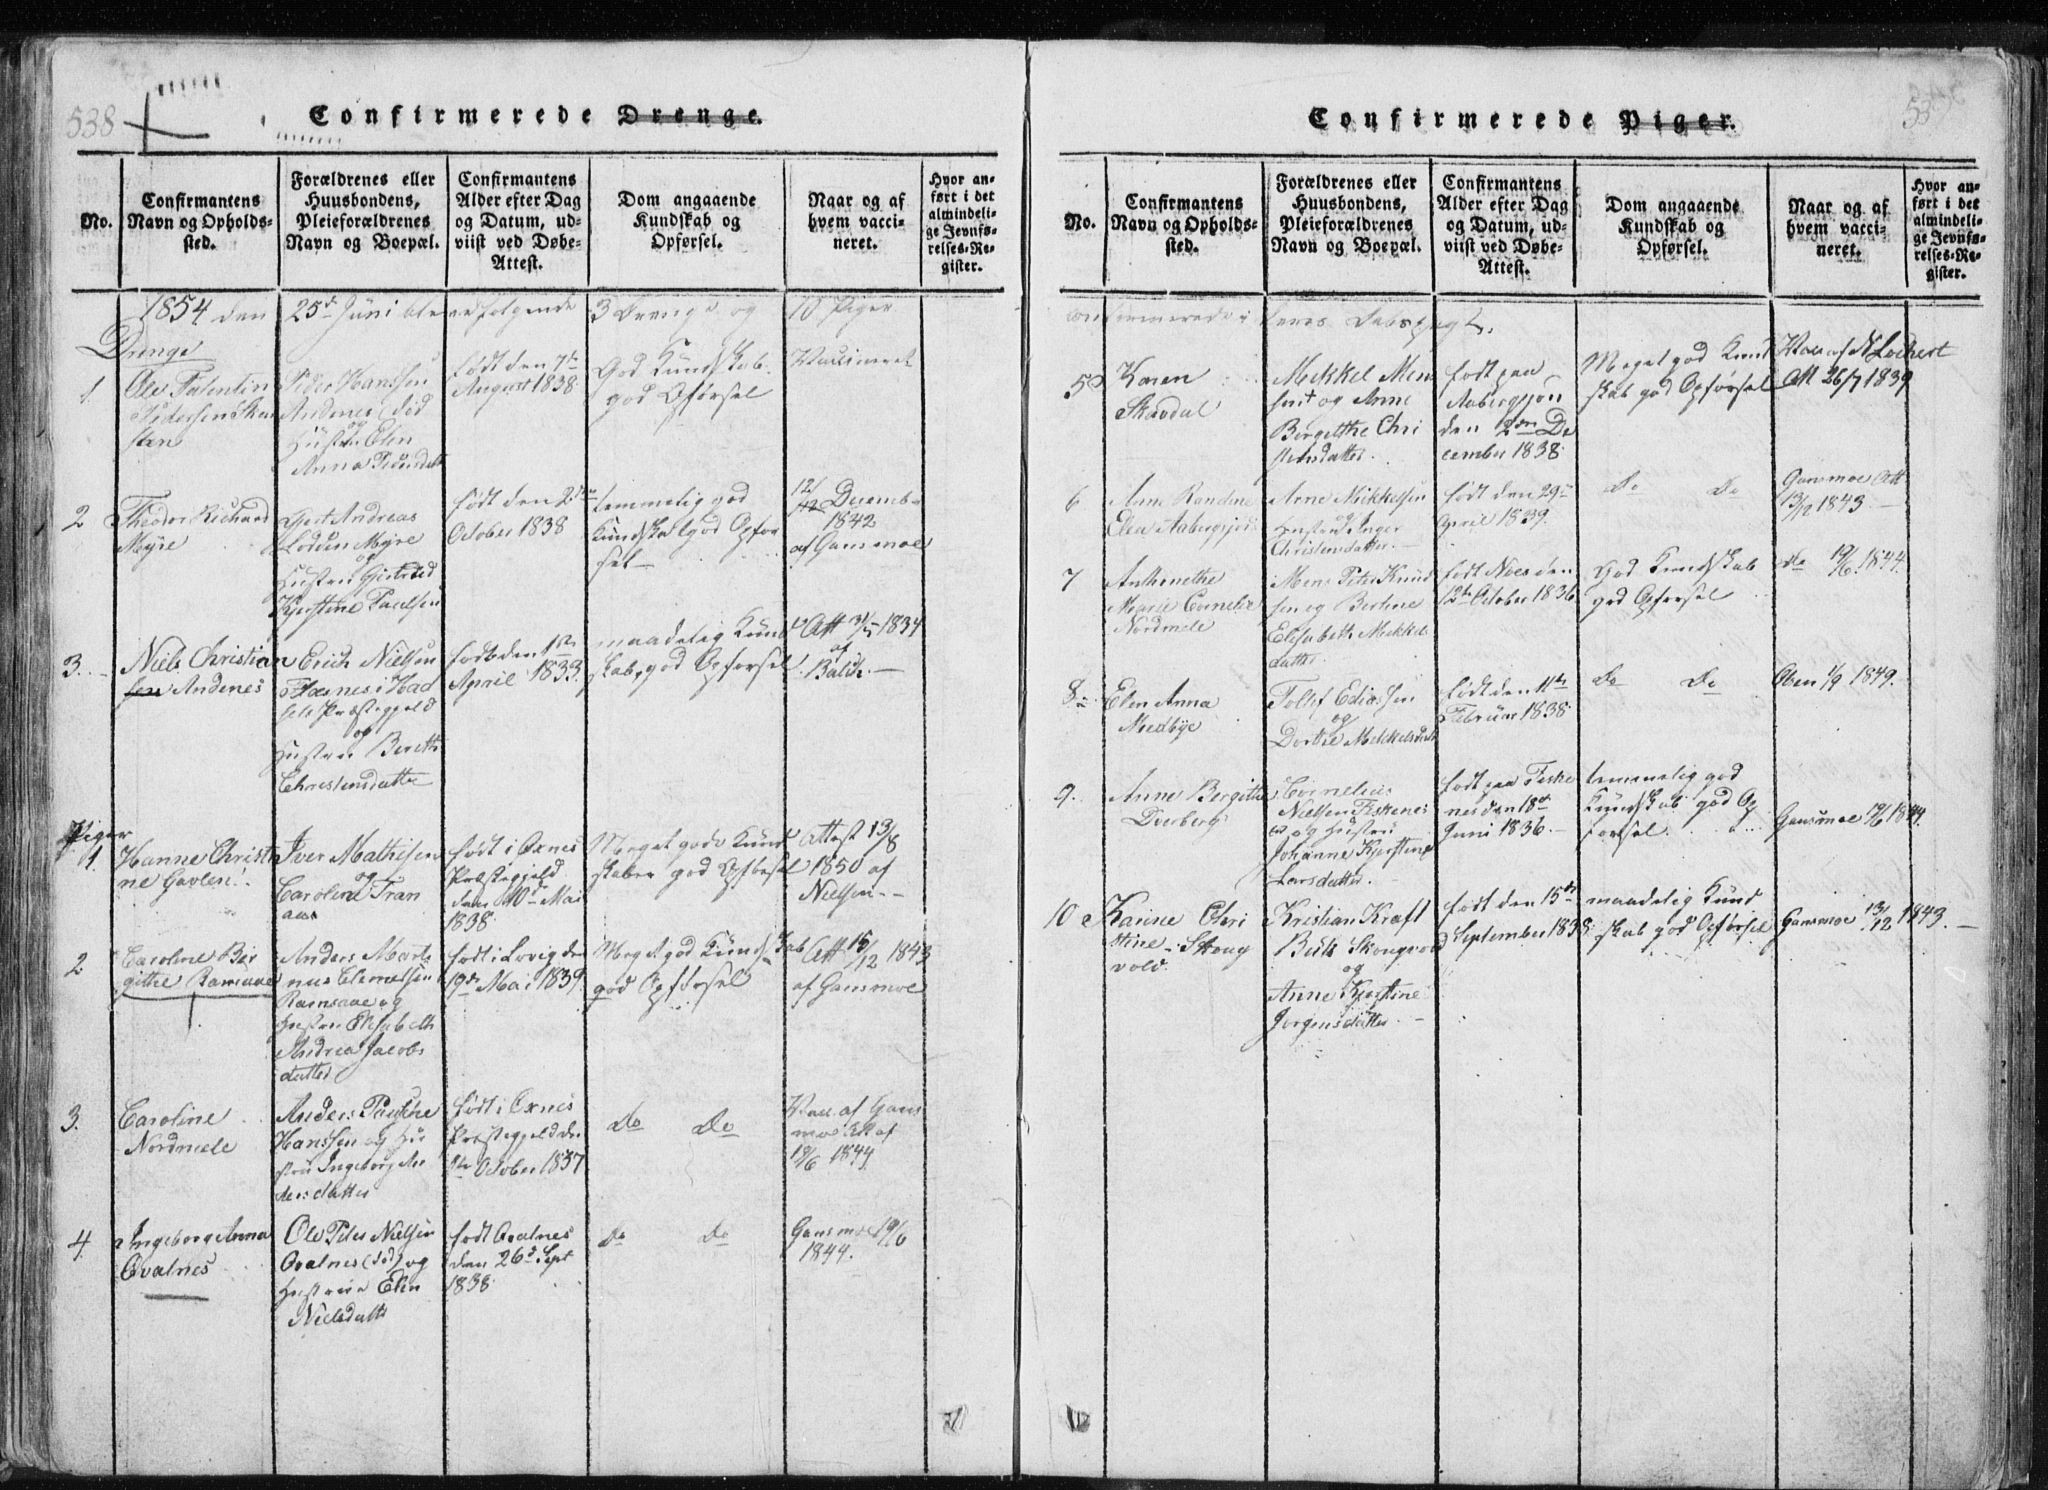 538
Confirmerede Drenge.
No.
Confirmantens
Navn og Opholds-
sted.
Forældrenes eller
Huusbondens,
Pleieforældrenes
Navn og Boepæl.
Confirmantens
Alder efter Dag
og Datum, ud-
viist ved Døbe-
Attest.
Dom angaaende
Kundskab og
Opførsel.
Naar og af
hvem vacci-
neret.
Hvor an-
ført i det
almindeli-
ge Jevnfø-
relses-Re-
gister.
1854 den 25de Juni bleve følgende 3 Drenge og 10 Piger
Drenge
1.
Ole Falentin
Pedersen
Peder Hanssen
Andenes (død
og
Hustru Elen
Anna
født den 7de
August 1838
God Kundskab.
god Opførsel
Vaccineret
2
Theodor Richard
Myre
Gjert Andreas
Lodden Myre
og
Hustru
Kjerstine Paulsen
født den 2den
October 1838
temmelig god
Kundskab god Opfør
sel
12/12 Decemb-
1842
af Gansmoe
3.
Niels Christian
sen Andenes
Erich Nielsen
i Had
sels Præstegjeld
og
Hustru Bereth
Christensdatter
født den 1ste
April 1833
maadelig Kund
skab, god Opførsel
Att 31/5 1834
af
Balch.
Piger
1.
Hanne Christi
ne Gavlen
Iver Mathisen
og
Caroline Fran
født i Øxnes
Præstegjeld
den 10de Mai
1838
Meget gode Kund
skaber god Opførsel
Attest 13/8
1850 af
Nielsen
2
Caroline Bir
githe Ramsaae
Anders Mart
nus Clemetsen
Ramsaae og
Hustru Elisabeth
Andrea Jacobs
datter
født i den
19de Mai 1839
Meget god Kundskab
god Opførsel
Att 15/12 1843
af Gansmoe
3.
Caroline
Nordmele
Anders
Hanssen og Hu
stru Ingeborg An
dersdatter
født i Øxnes
Præstegjeld den
October 1837
Do Do
Vacc af Gans
moe Att af
19/6 1844
4.
Ingeborg Anna
Qvalnes
Ole Peter Nielsen
Qvalnes (død) og
Hustrue Elen
Nielsdatter
født Qvalnes
den 26de Sept
1838
Do Do
Gansmoe 19/6
1844.
Confirmerede Piger.
No.
Confirmantens
Navn og Opholds-
sted.
Forældrenes eller
Huusbondens,
Pleieforældrenes
Navn og Boepæl.
Confirmantens
Alder efter Dag
og Datum, ud-
viist ved Døbe-
Attest.
Dom angaaende
Kundskab og
Opførsel.
Naar og af
hvem vacci-
neret.
Hvor an-
ført i det
almindeli-
ge Jevnfø-
relses-Re-
gister.
confirmerede i deres Daabspagt.
5
Karen
Skavdal
Mikkel Mon
sen og Anne
Bergitthe Chri
stensdatter.
født paa
Aabergsjon
den 2den De
cember 1838
Meget god Kund
skab god Opførsel
Vacc af N Lochert
Att 26/7 1839
6
Anne Randine
Elea Aabergsjord
Arne Mikkelsen
og
Hustru Inger
Christensdatter.
født den 29de
April 1839.
Do Do
Gansmoe Att
13/12 1843
7
Anthonethe
Marie Cornelia
Nordmele
Mons Peter Knud
sen og Berthine
Elisabeth Mikkels
datter
født Noes den
12te October 1836
God Kundskab
god Opførsel
do 19/6 1844.
8
Elen Anna
Medbye
Tollef Ediassen
og
Dorthe Mikkelsdatt
født den 11te
Februar 1838
Do Do
Oben 1/9 1849.
9.
Anne Bergitthe
Dverberg
Cornelius
Nielsen Fiskenes
og Hustru
Johanne Kjerstine
Larsdatter
født paa Fiske
nes den 18de
Juni 1836.
temmelig god
Kundskab god Op
førsel.
Gansmoe 19/6 1844.
10
Karine Chri
stine Skoug
vold
Kristian Kraft
Buk Skougvold
og
Anne Kjerstine
Jørgensdatter
født den 15de
September 1838
maadelig Kund
skab god Opførsel
Gansmoe 13/12 1843.